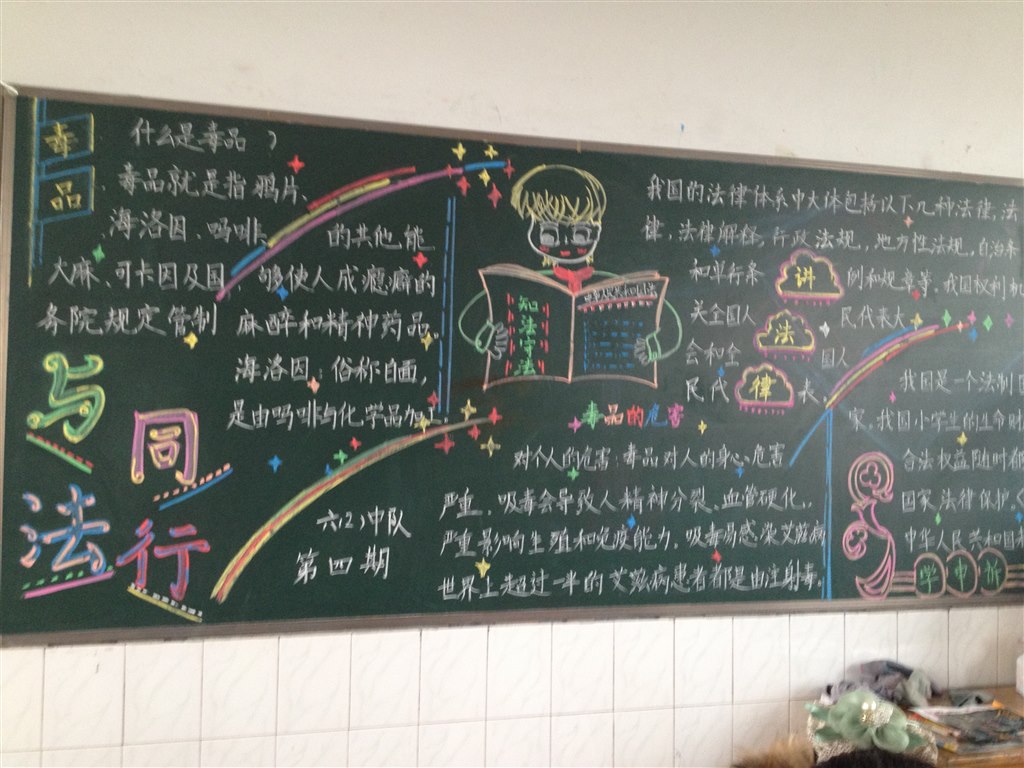 毒品
什么是毒品
毒品就是指鸦片、
海洛因、吗啡、
大麻、可卡因及国
务院规定管制
的其他能
够使人成瘾癖的
麻醉和精神药品
海洛因：俗称白面，
是由吗啡与化学品加工
与法同行
六(2)中队
第四期
知法守法
中华人民共和国
毒品的危害
对个人的危害：毒品对人的身心危害
严重，吸毒会导致人精神分裂、血管硬化，
严重影响生殖和免疫能力，吸毒易感染艾滋病
世界上超过一半的艾滋病患者都是由注射毒
我国的法律体系中大体包括以下几种法律，法
律，法律解释，行政法规，地方性法规，自治条
和单行条
例和规章等，我国权利机
关全国人
民代表大
会和全
国人
民代
表
讲法律
我国是一个法制国
家，我国小学生的生命财
合法权益随时都
国家法律保护，
中华人民共和国
学申诉